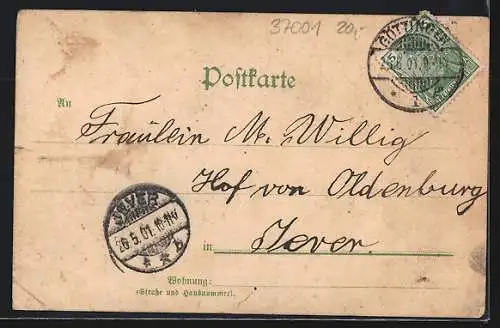 37001 20,-
GÖTTINGEN
Postkarte
An
Fräulein M. Willig
Hof von Oldenburg
JEVER
26.5.01.
in Jever.
Wohnung:
(Straße und Hausnummer).